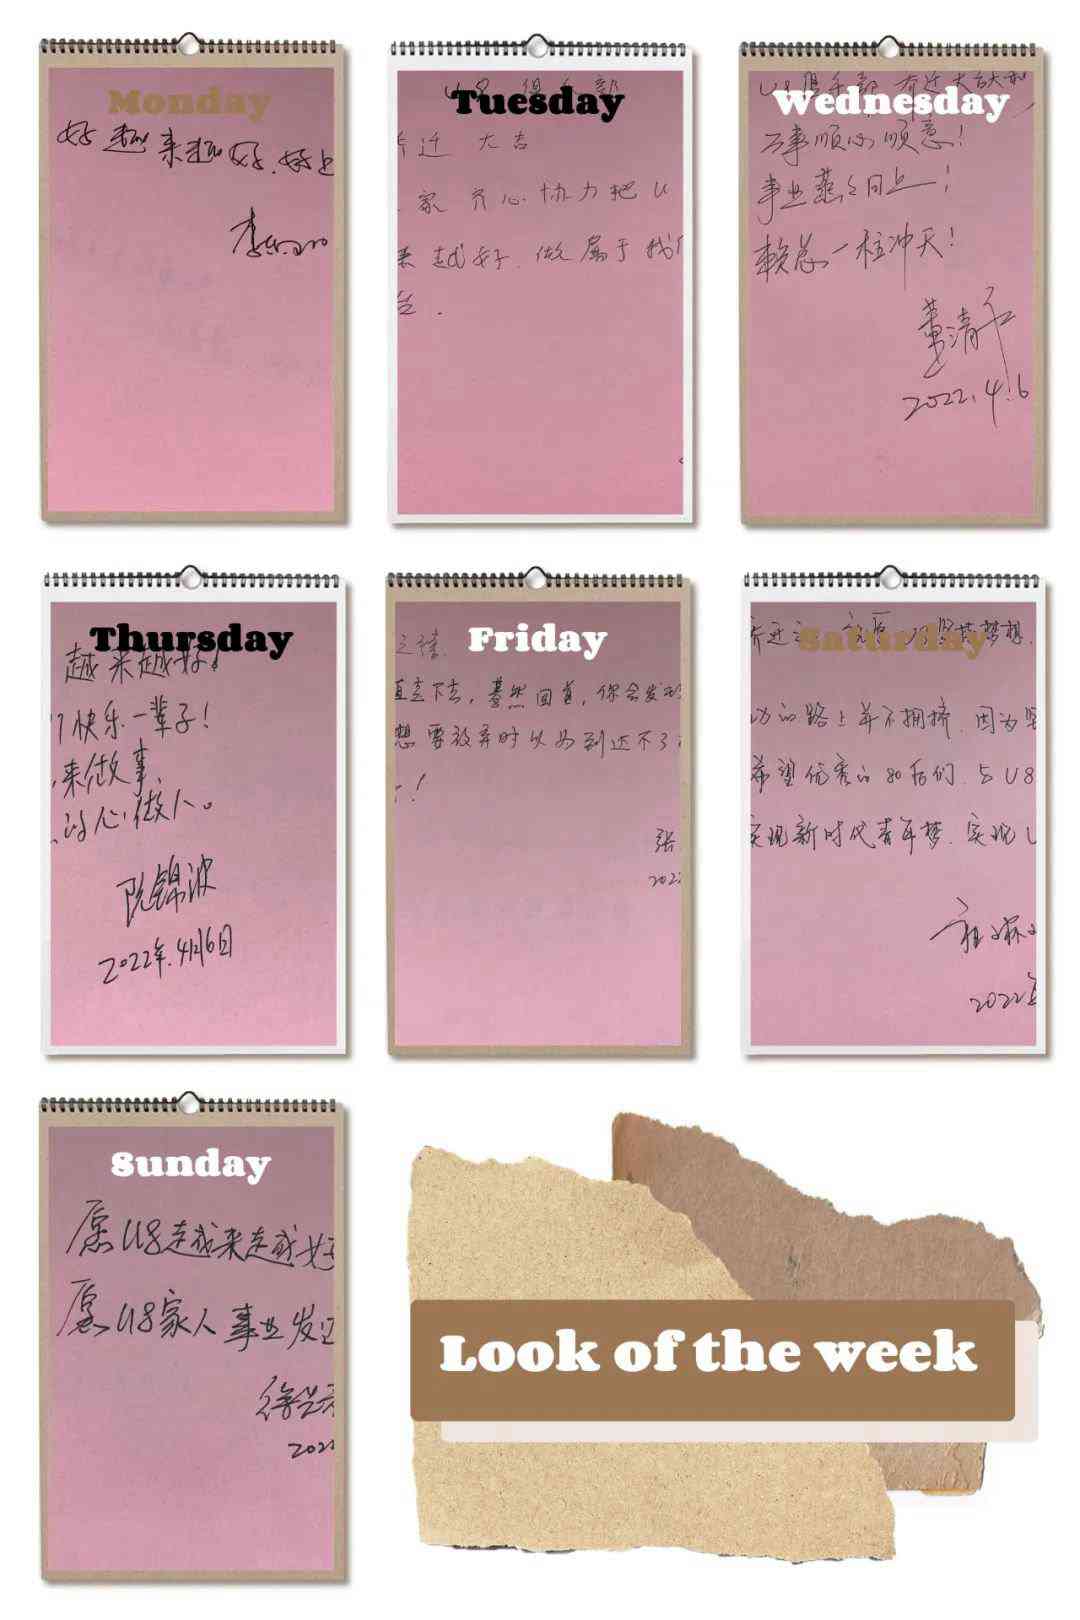 Monday
好越来越好.好上
Tuesday
迁大吉
家齐心协力把U
来越好.做属于我们
台.
Wednesday
U8俱乐部乔迁大吉大利
万事顺心顺意!
事业蒸蒸日上!
赖总一柱冲天!
董清
2022.4.6
Thursday
越来越好!
们快乐一辈子!
来做事,
心做人。
阮锦波
2022年.4月6日
Friday
之禧.
直走下去,蓦然回首,你会发现
想要放弃时以为到达不了
!
张
202
Saturday
乔迁之 梦想.
功的路上并不拥挤.因为坚
希望优秀的80后们.与U8
实现新时代青年梦.实现U
2022年
Sunday
愿U8越来越好
愿U8家人事业发
徐
202
Look of the week